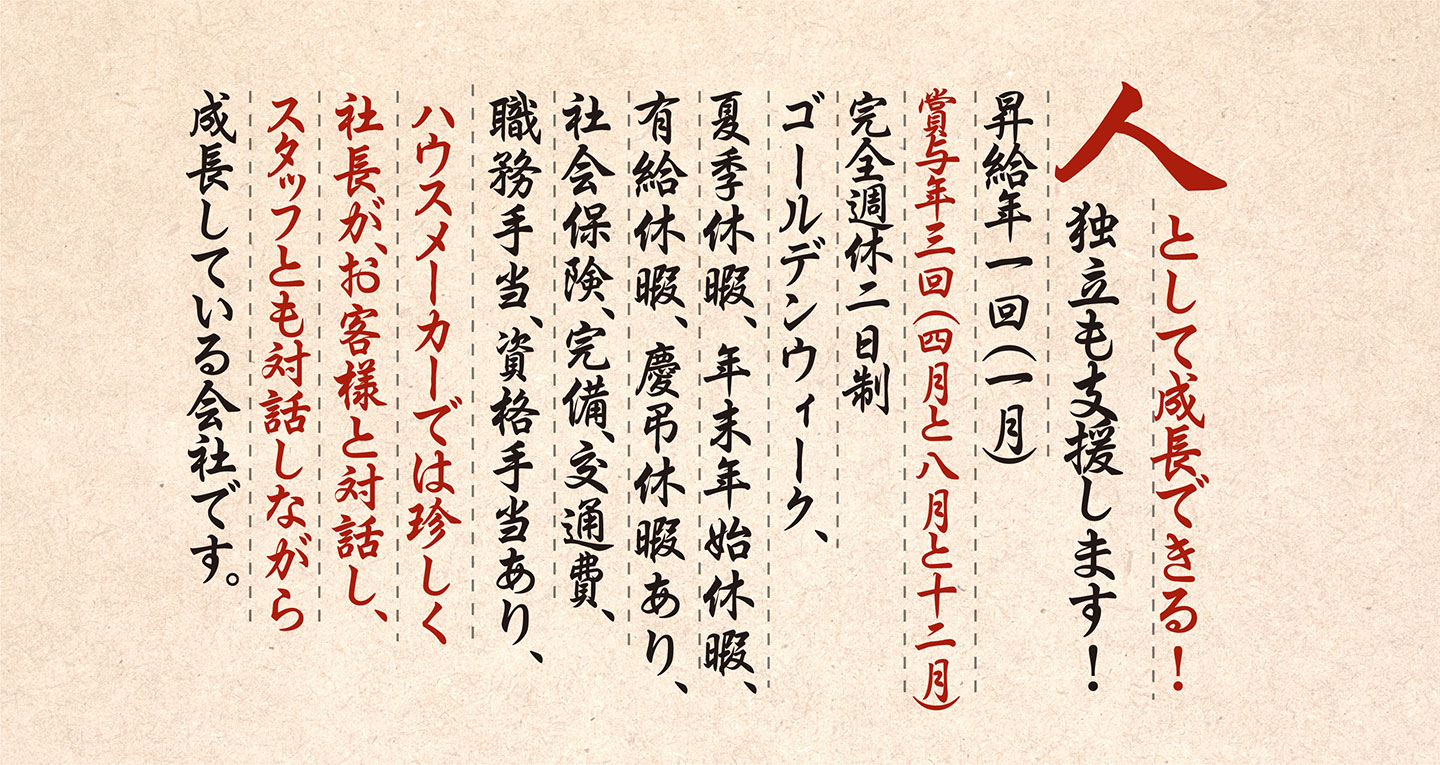 人として成長できる！
独立も支援します！
昇給年一回(一月)
賞与年三回(四月と八月と十二月)
完全週休二日制
ゴールデンウィーク、
夏季休暇、年末年始休暇、
有給休暇、慶弔休暇あり、
社会保険、完備、交通費、
職務手当、資格手当あり、
ハウスメーカーでは珍しく
社長が、お客様と対話し、
スタッフとも対話しながら
成長している会社です。